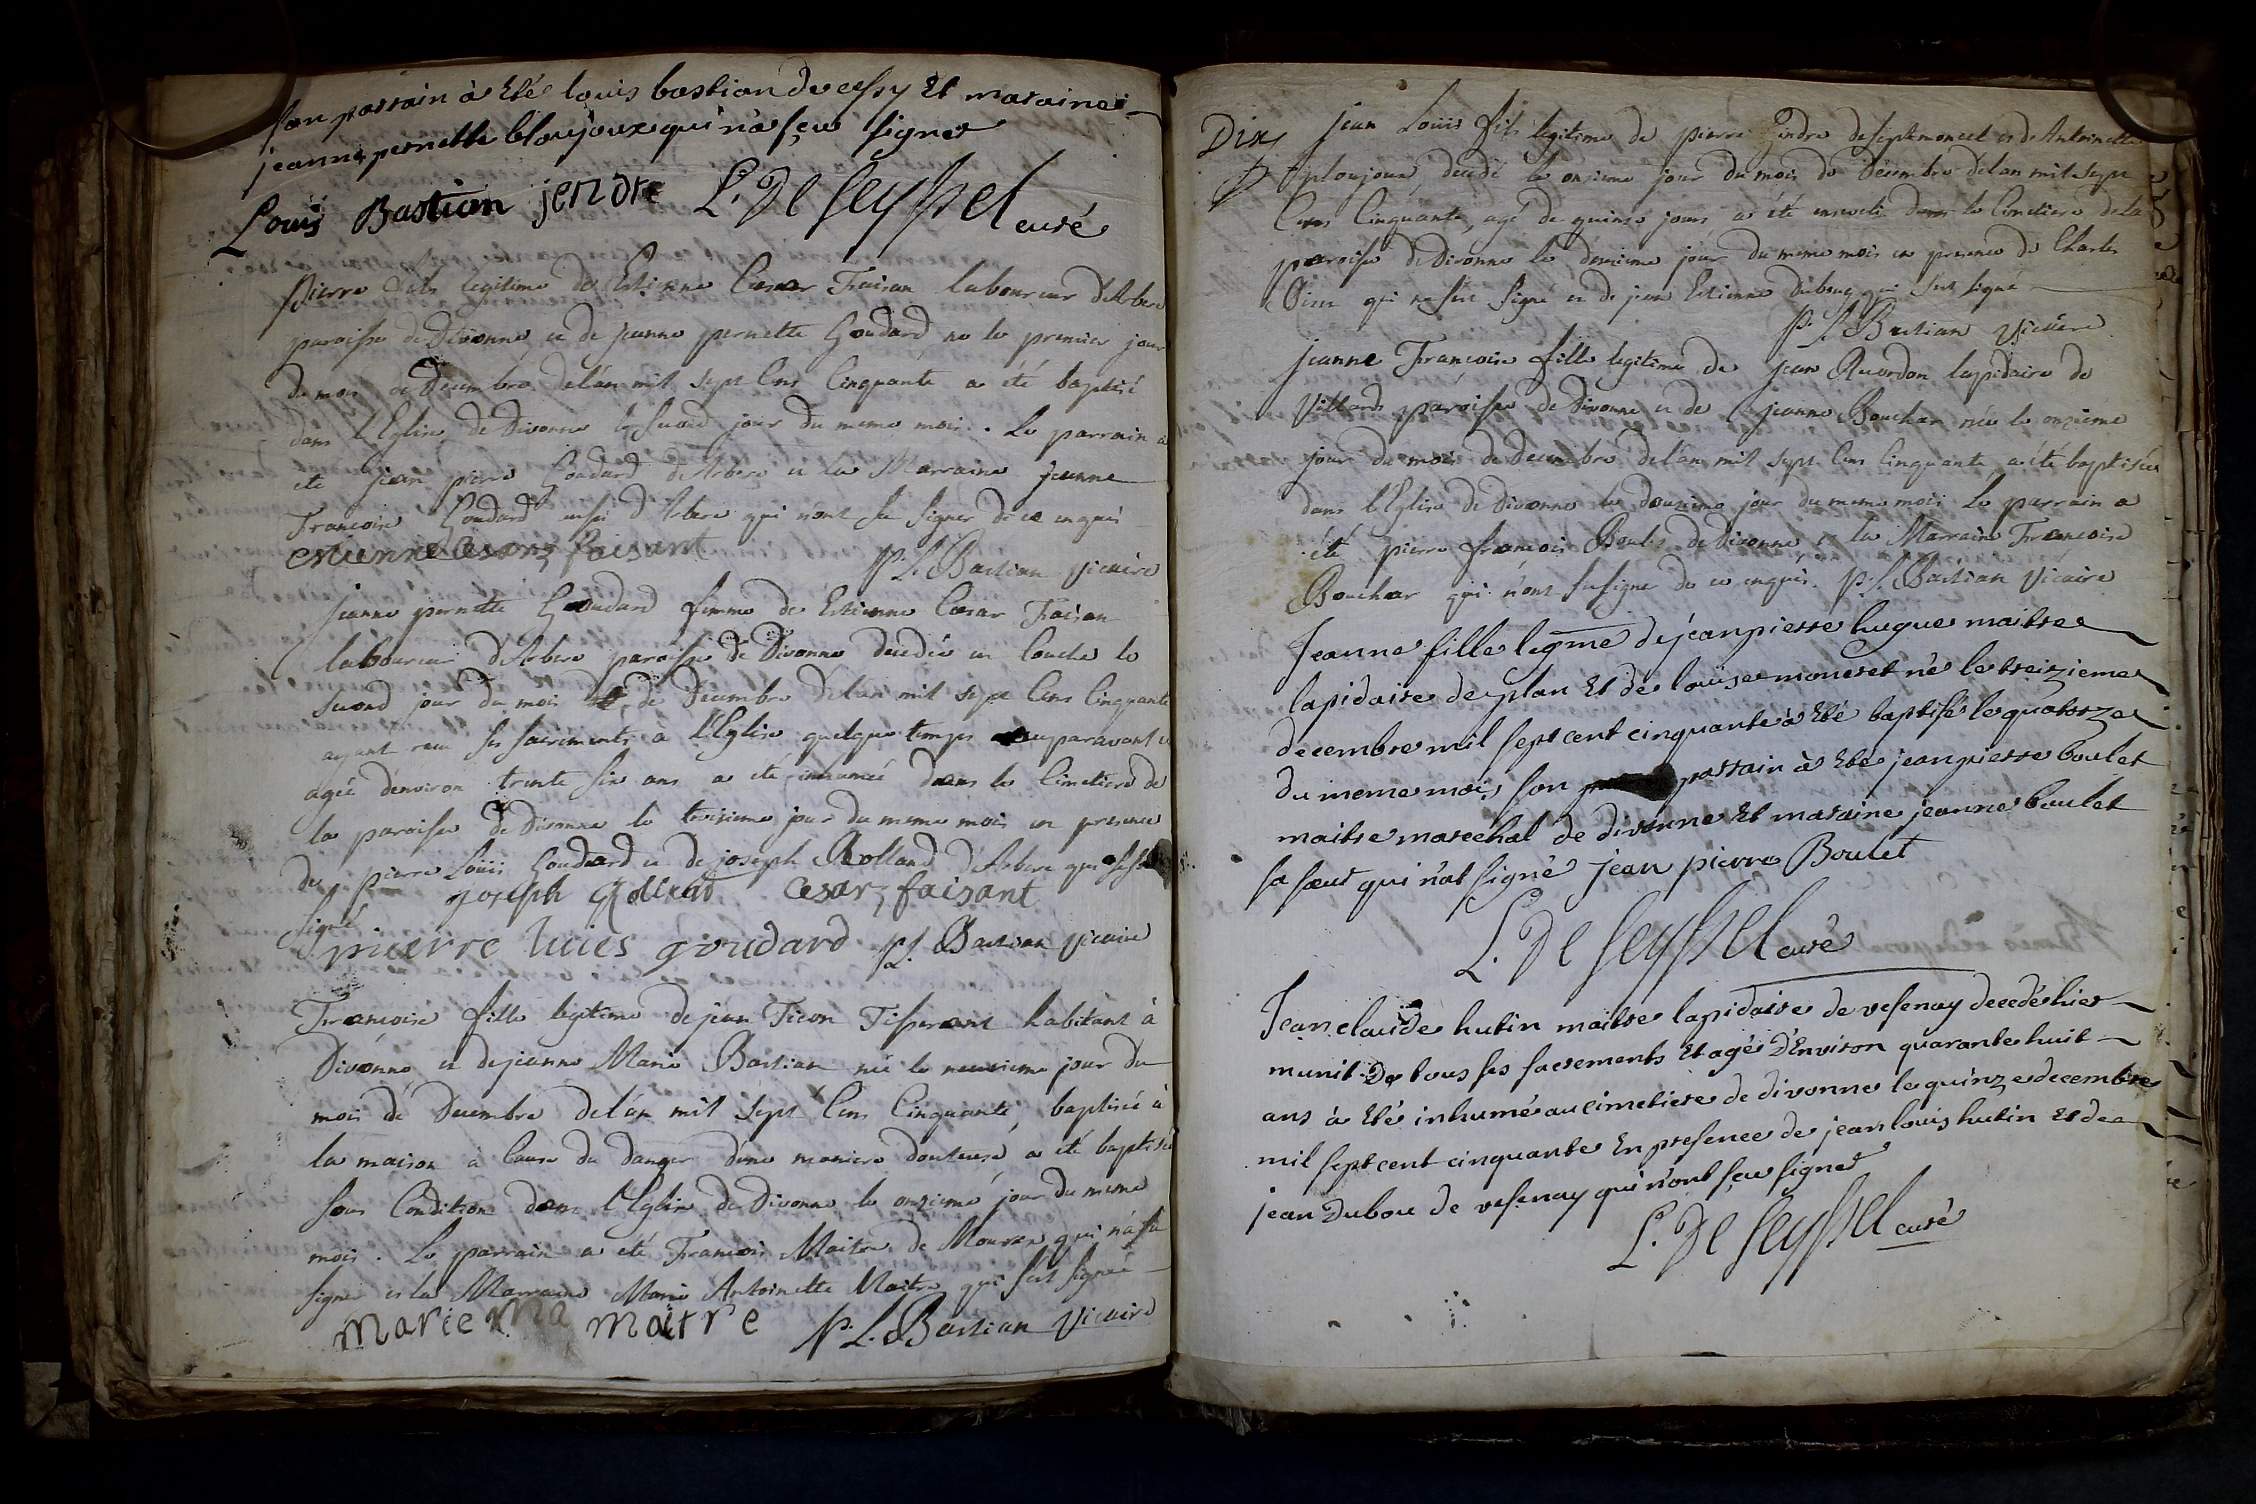 son parrain à Eté louis bastian de cessy Et maraine
jeanne pernette bloujoux qui n'a sçeu signer
Louis Bastian jendre L. De Seyssel curé
Pierre fils legitime de Estienne Cesar Faisan laboureur d'Arbere
paroisse de Divonne et de Jeanne pernette Goudard né le premier jour
du mois de Decembre de l'an mil sept Cens Cinquante a été baptisé
dans l'Eglise de Divonne le second jour du meme mois. Le parrain a
été jean pierre Goudard d'Arbere et la Marraine Jeanne
Francoise Goudard aussi d'Arbere qui n'ont su signer de ce enquis
estienne Cesarz faisant p. L. Bastian vicaire
Jeanne pernette Goudard femme de Estienne Cesar Faisan
laboureur d'Arbere paroisse de Divonne decedée en Couche le
second jour du mois de Decembre de l'an mil sept Cens Cinquante
ayant recu ses sacrements à l'Eglise quelque temps auparavant et
agée d'environ trente six ans a été inhumée dans le Cimetiere de
la paroisse de Divonne le troisieme jour du meme mois en presence
de pierre Louis Goudard et de joseph Rolland d'Arbere qui se sont
signé joseph Rolland Cesarz faisant
pieerre luies goudard p. L. Bastian vicaire
Francoise fille legitime de jean Ticon Tisserant habitant à
Divonne et de jeanne Marie Bastian née le neuvieme jour du
mois de Decembre de l'an mil sept Cens Cinquante, baptisée à
la maison à Cause du danger d'une maniere douteuse a été baptisée
sous Condition dans l'Eglise de Divonne le onzieme jour du meme
mois. Le parrain a été Francois Maitre de Mourex qui n'a su
signer et la Marraine Marie Antoinette Maitre qui s'est signée
marie ma maitre p. L. Bastian Vicaire
Dix Jean Louis fils legitime de pierre Gendre de septmoncel et de Antoinette
ploujoux, decedé le onzieme jour du mois de Decembre de l'an mil sept
Cens Cinquante, agé de quinze jours a été enseveli dans le Cimetiere de la
paroisse de Divonne le douzieme jour du meme mois en presence de Charles
qui s'est signé et de jean Estienne Dubouq qui s'est signé
p. L. Bastian Vicaire
Jeanne Françoise fille legitime de Jean Ruordon lapidaire de
Villard paroisse de Divonne et de jeanne Bouchar née le onzieme
jour du mois de Decembre de l'an mil sept Cens Cinquante a été baptisée
dans l'Eglise de Divonne le douzieme jour du meme mois Le parrain a
été pierre françois Boulet de Divonne et la Marraine Francoise
Bouchar qui n'ont su signé de ce enquis. p. L. Bastian Vicaire
Jeanne fille legme de jean pierre hugue maitre
lapidaire de plan Et de louise moneret né le treizieme
decembre mil sept cent cinquante à Eté baptisé le quatorze
du meme mois son parrain à Eté jean pierre boulet
maitre marechal de divonne Et maraine jeanne boulet
sa sœur qui n'at signé jean pierre Boulet
L. De Seyssel curé
Jean claude hutin maitre lapidaire de vesenay decedé hier
munit De tous ses sacrements Et agé d'Environ quarante huit
ans à Eté inhumé au cimetiere de divonne le quinze decembre
mil sept cent cinquante En presence de jean louis hutin et de
jean Dubou de vesenay qui n'ont sçeu signer
L. De Seyssel curé